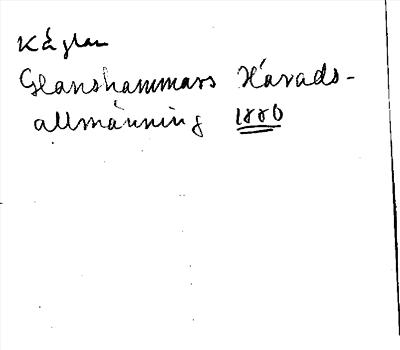 Käglan
Glanshammars Härads-
allmänning 1880